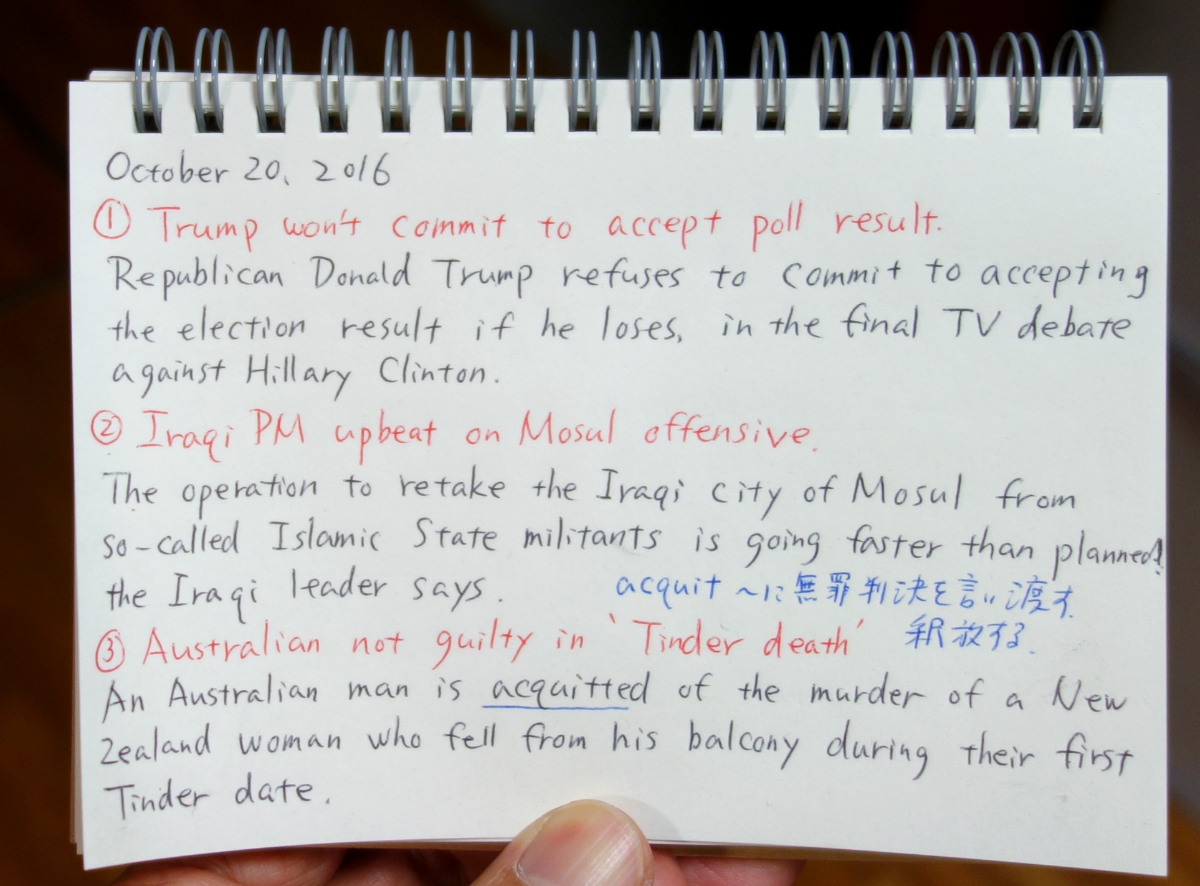 October 20, 2016
① Trump won't commit to accept poll result.
Republican Donald Trump refuses to commit to accepting
the election result if he loses, in the final TV debate
against Hillary Clinton.
② Iraqi PM upbeat on Mosul offensive.
The operation to retake the Iraqi city of Mosul from
so-called Islamic State militants is going faster than planned,
the Iraqi leader says.
acquit ~に無罪判決を言い渡す.
釈放する.
③ Australian not guilty in 'Tinder death'
An Australian man is acquitted of the murder of a New
Zealand woman who fell from his balcony during their first
Tinder date.